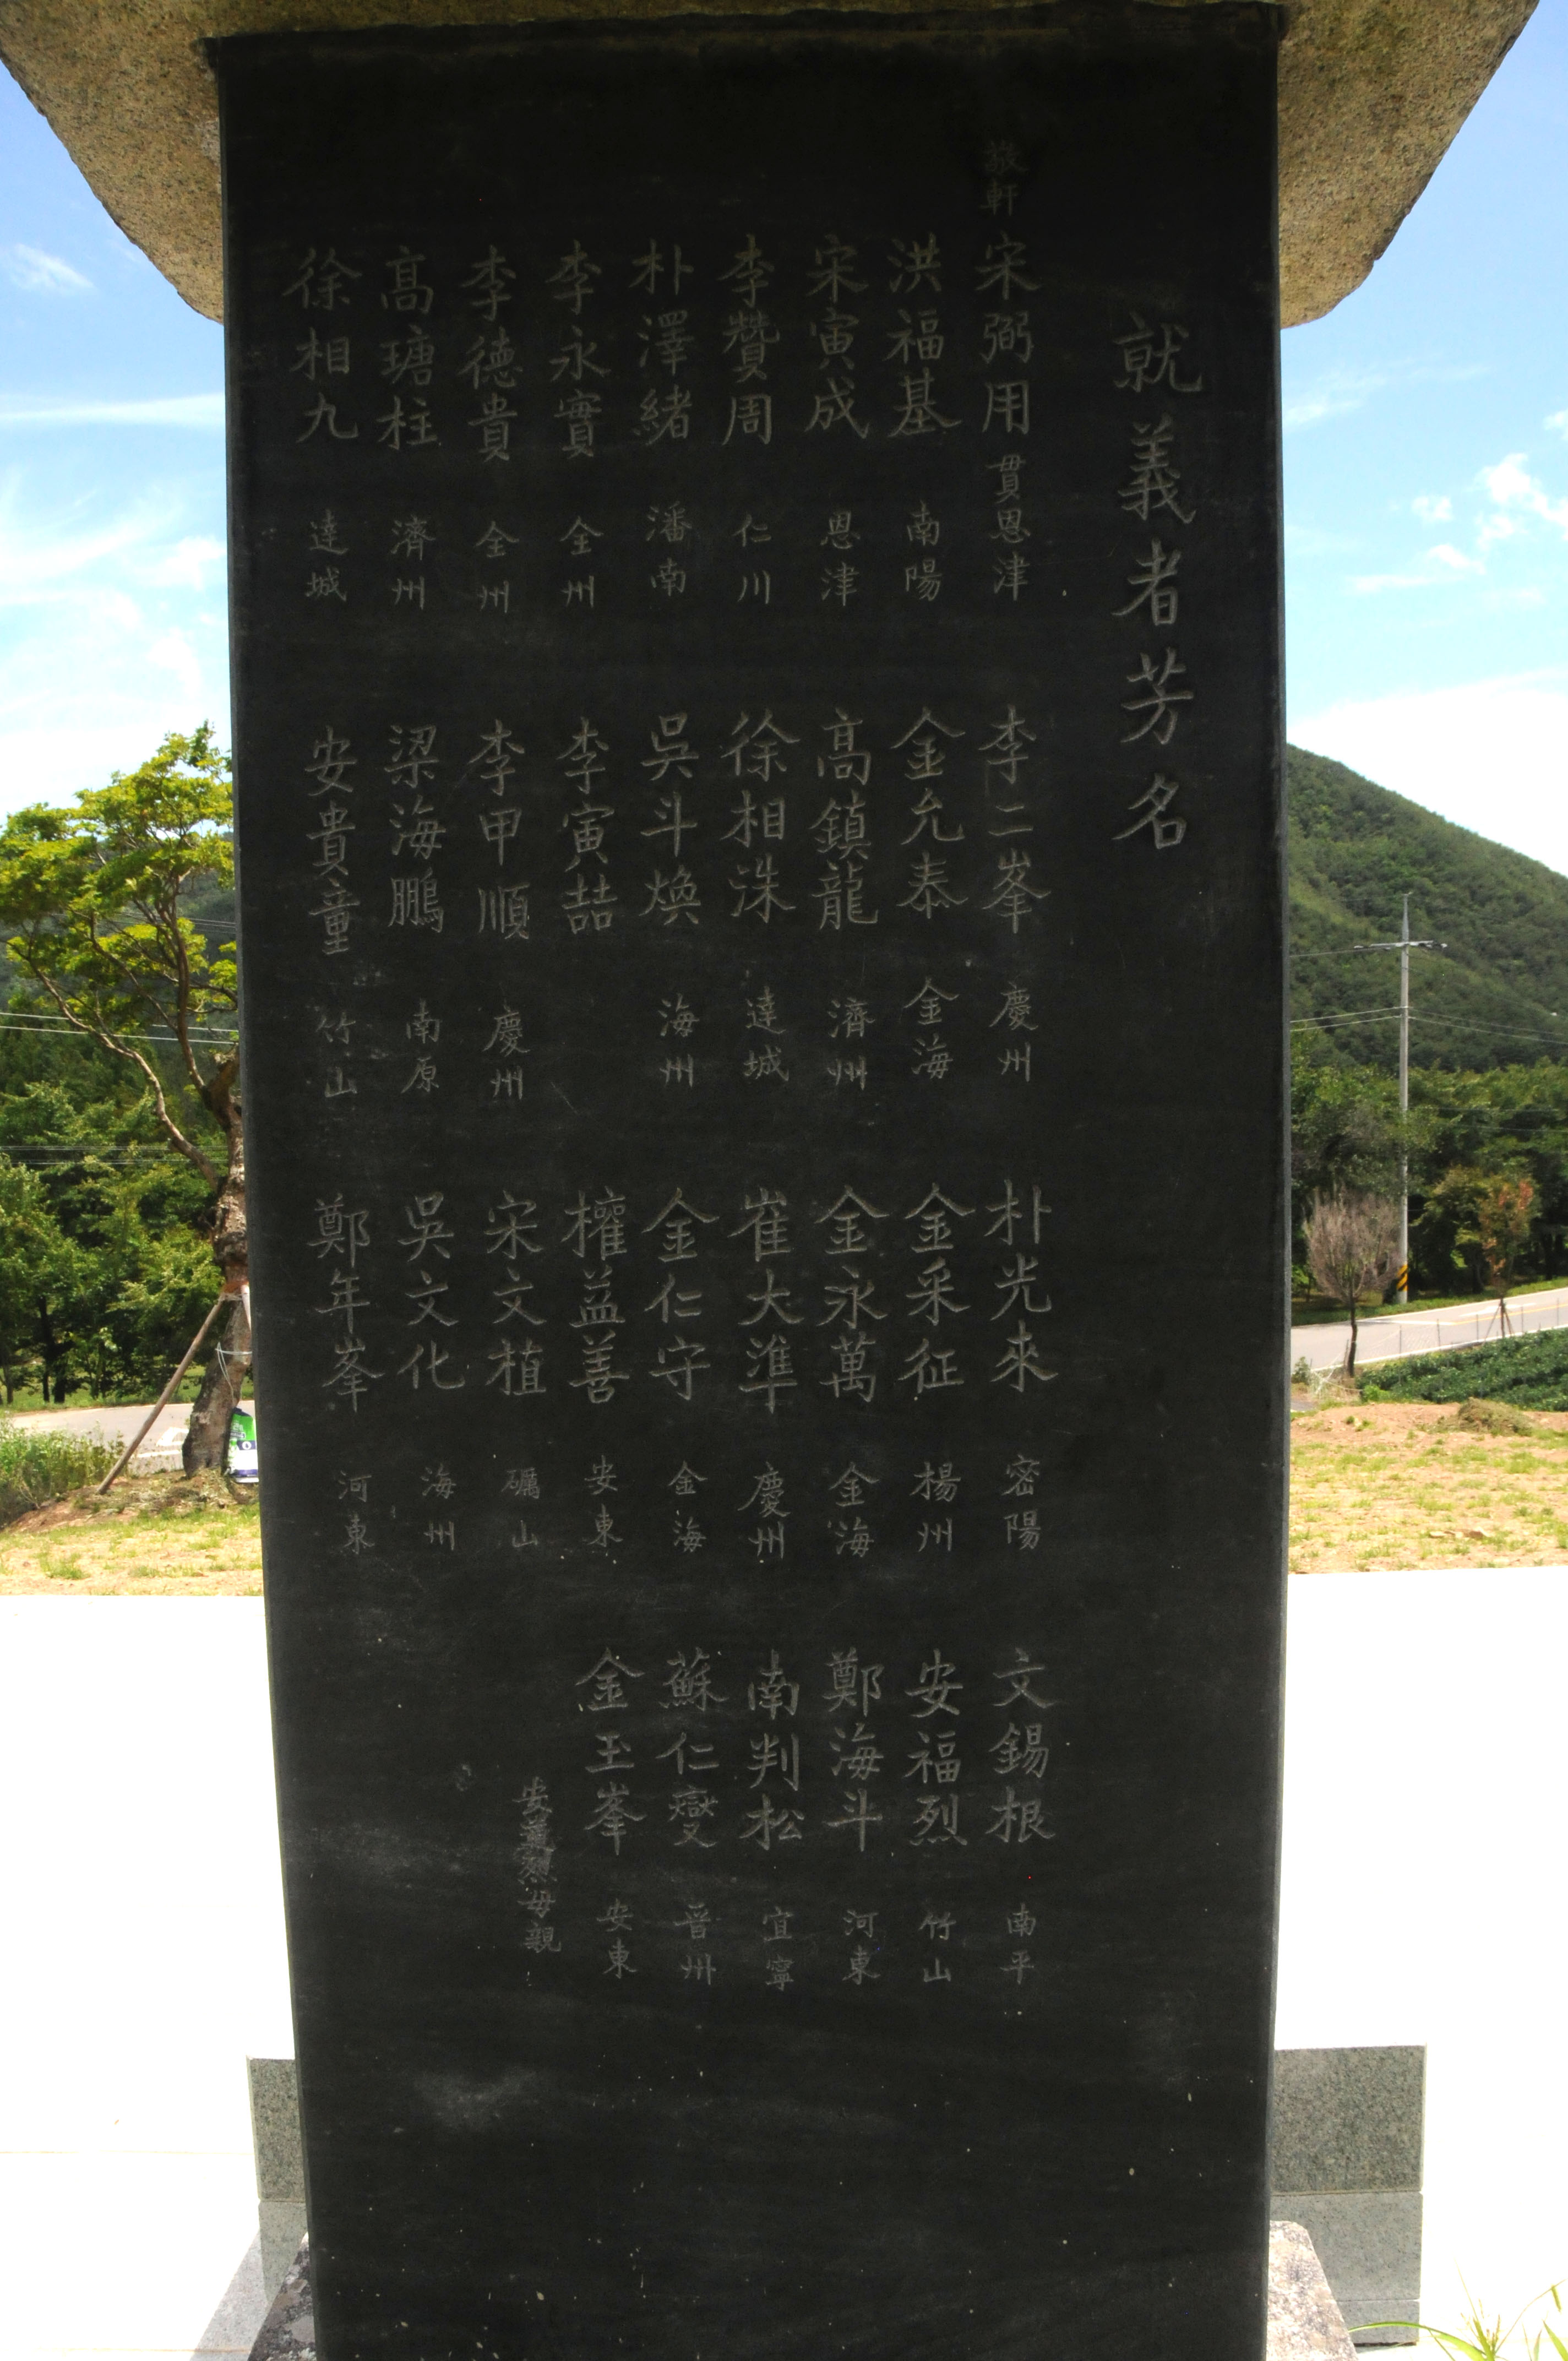 就義者芳名
敬軒 宋弼用 貫恩津 李二峯 慶州 朴光來 密陽 文錫根 南平
洪福基 南陽 金允泰 金海 金采征 楊州 安福烈 竹山
宋寅成 恩津 高鎮龍 濟州 金永萬 金海 鄭海斗 河東
李贊周 仁川 徐相洙 達城 崔大準 慶州 南判松 宜寧
朴澤緖 潘南 吳斗煥 海州 金仁守 金海 蘇仁燮 晉州
李永實 全州 李寅喆 權益善 安東 金玉峯 安東
李德貴 全州 李甲順 慶州 宋文植 礪山 安 烈母親
高瑭柱 濟州 梁海鵬 南原 吳文化 海州
徐相九 達城 安貴童 竹山 鄭年峯 河東